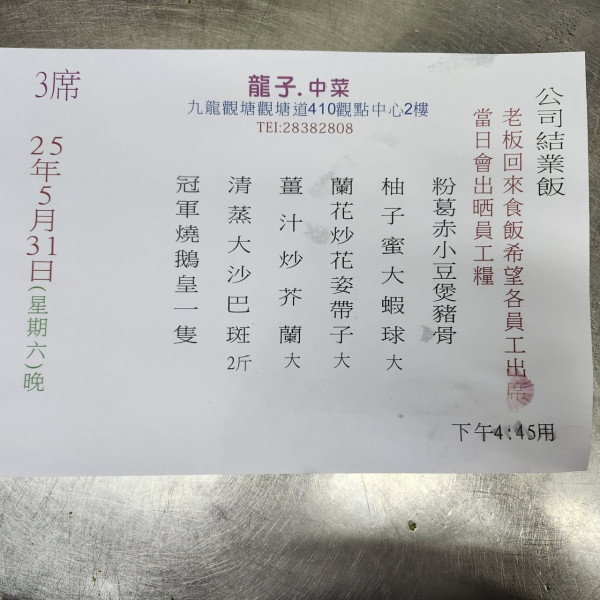 公司結業飯
老板回來食飯希望各員工出席
當日會出晒員工糧
龍子.中菜
九龍觀塘觀塘道410觀點中心2樓
TEl:28382808
粉葛赤小豆煲豬骨
柚子蜜大蝦球大
蘭花炒花姿帶子大
薑汁炒芥蘭大
清蒸大沙巴斑2斤
冠軍燒鵝皇一隻
3席
25年5月31日(星期六)晚
下午4:45用